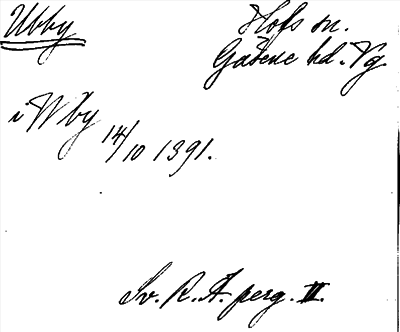 Ubby
Hofs sn.
Gäsene hd. Vg.
i Wby 14/10 1391.
Sv. R. A. perg. II.